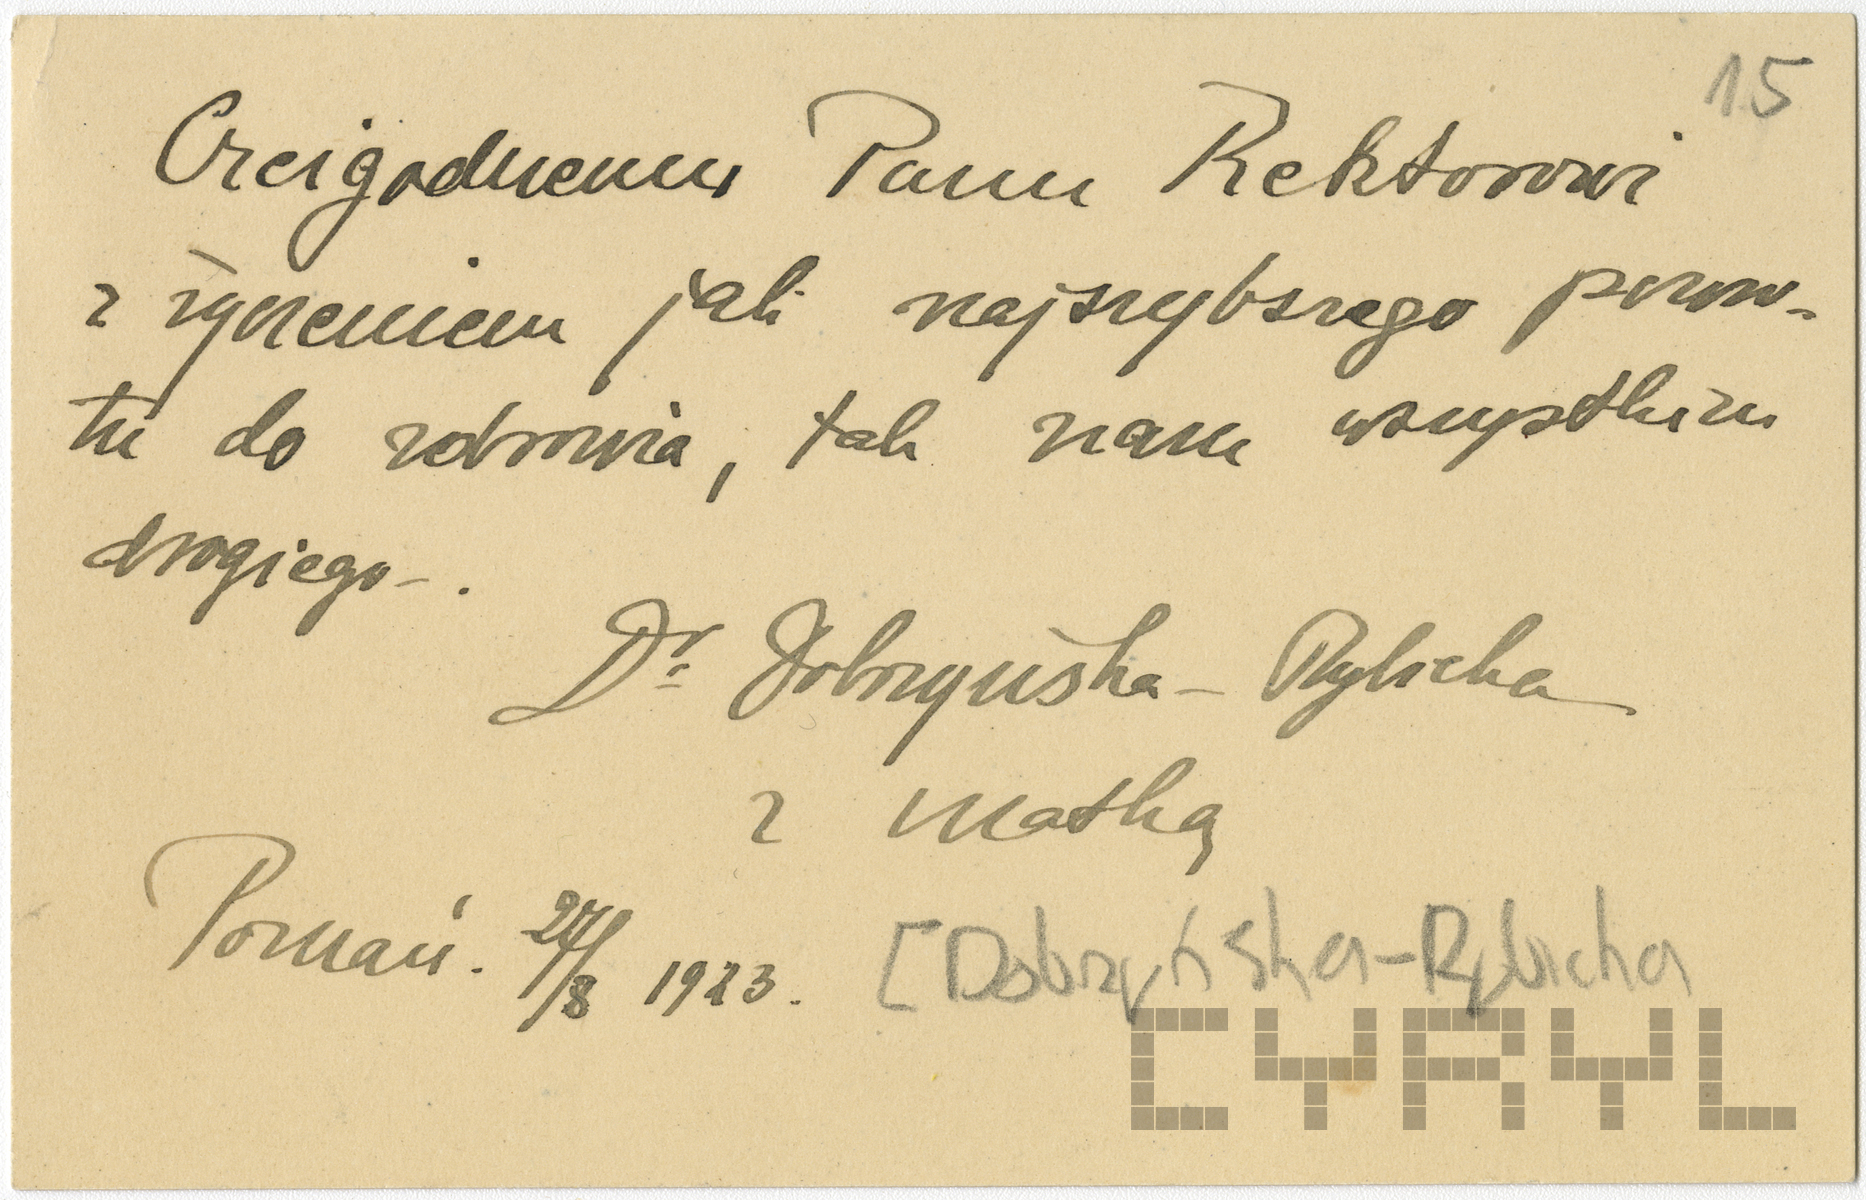 15
Czcigodnemu Panu Rektorowi
z życzeniem jak najszybszego powro-
tu do zdrowia, tak nam wszystkim
drogiego - .
Dr. Dobrzyńska - Rybicka
z matką
Poznań. 27/8 1923.
[Dobrzyńska-Rybicka
CYRYL